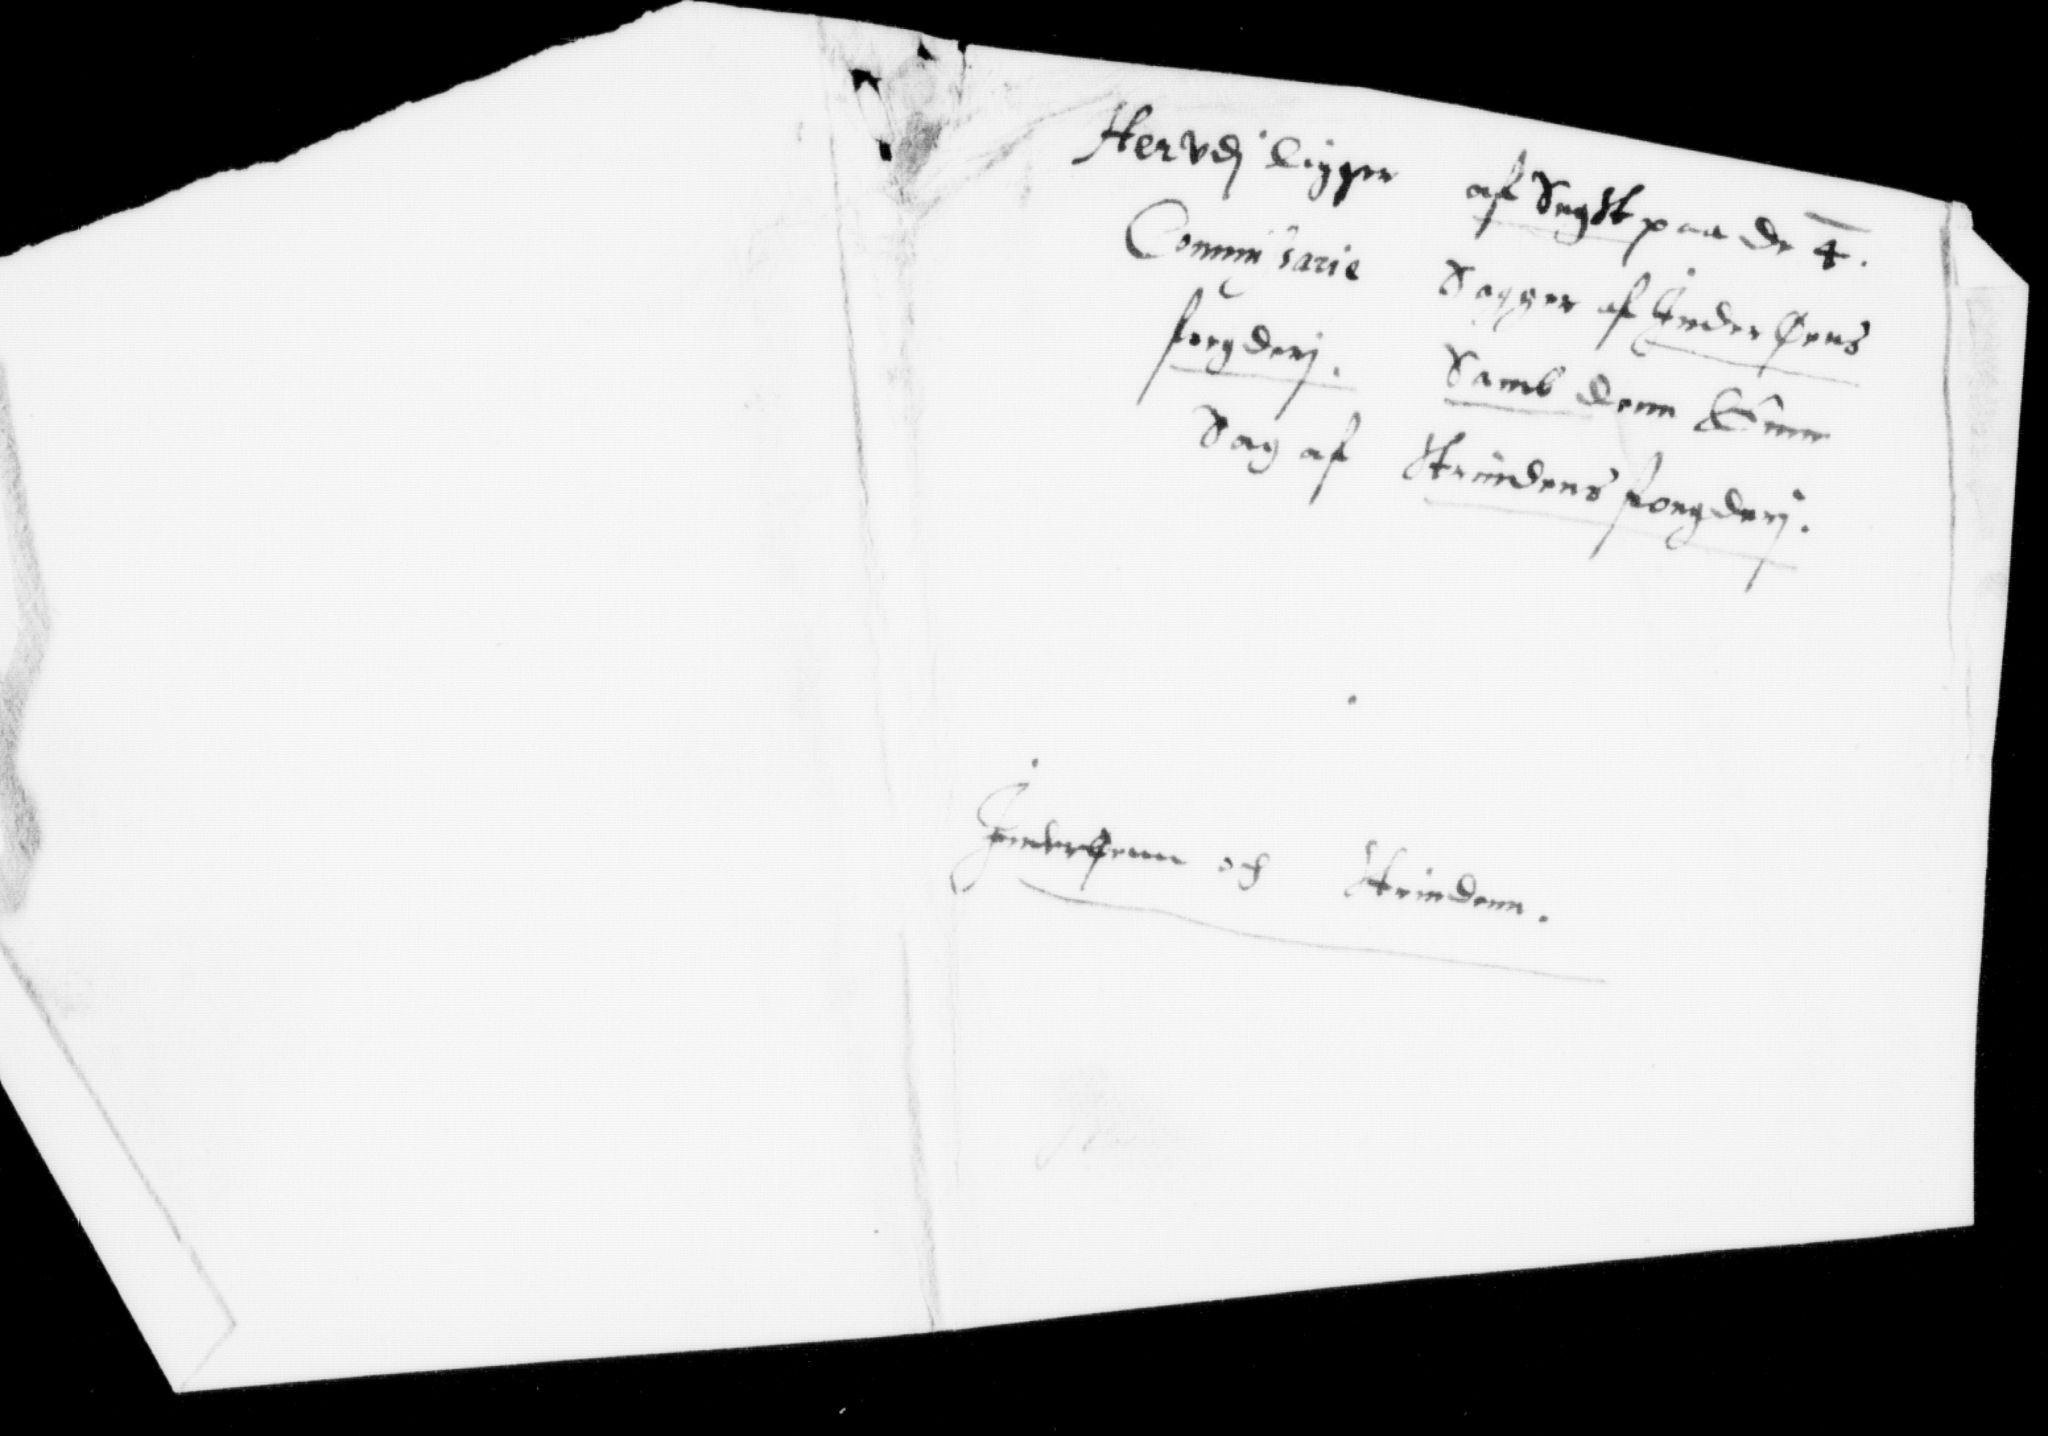 Her vdj ligger afsagt paa de 4.
Commissarie Sagger af Inder Øens
fogderj. Samb denn Eenne
Sag af Strindens fogderj.
Inderøenn och Strindenn.